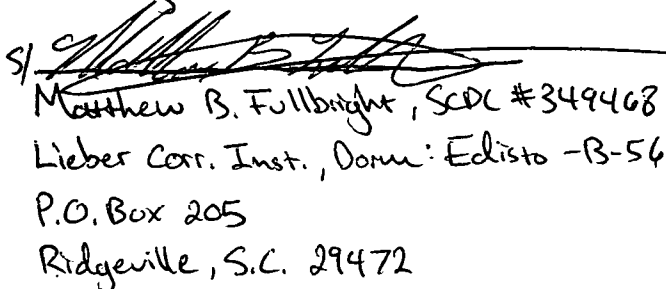 s/ Matthew B. Fullbright
Matthew B. Fullbright, SCDC #349468
Lieber Corr. Inst., Dorm: Edisto-B-56
P.O. Box 205
Ridgeville, S.C. 29472